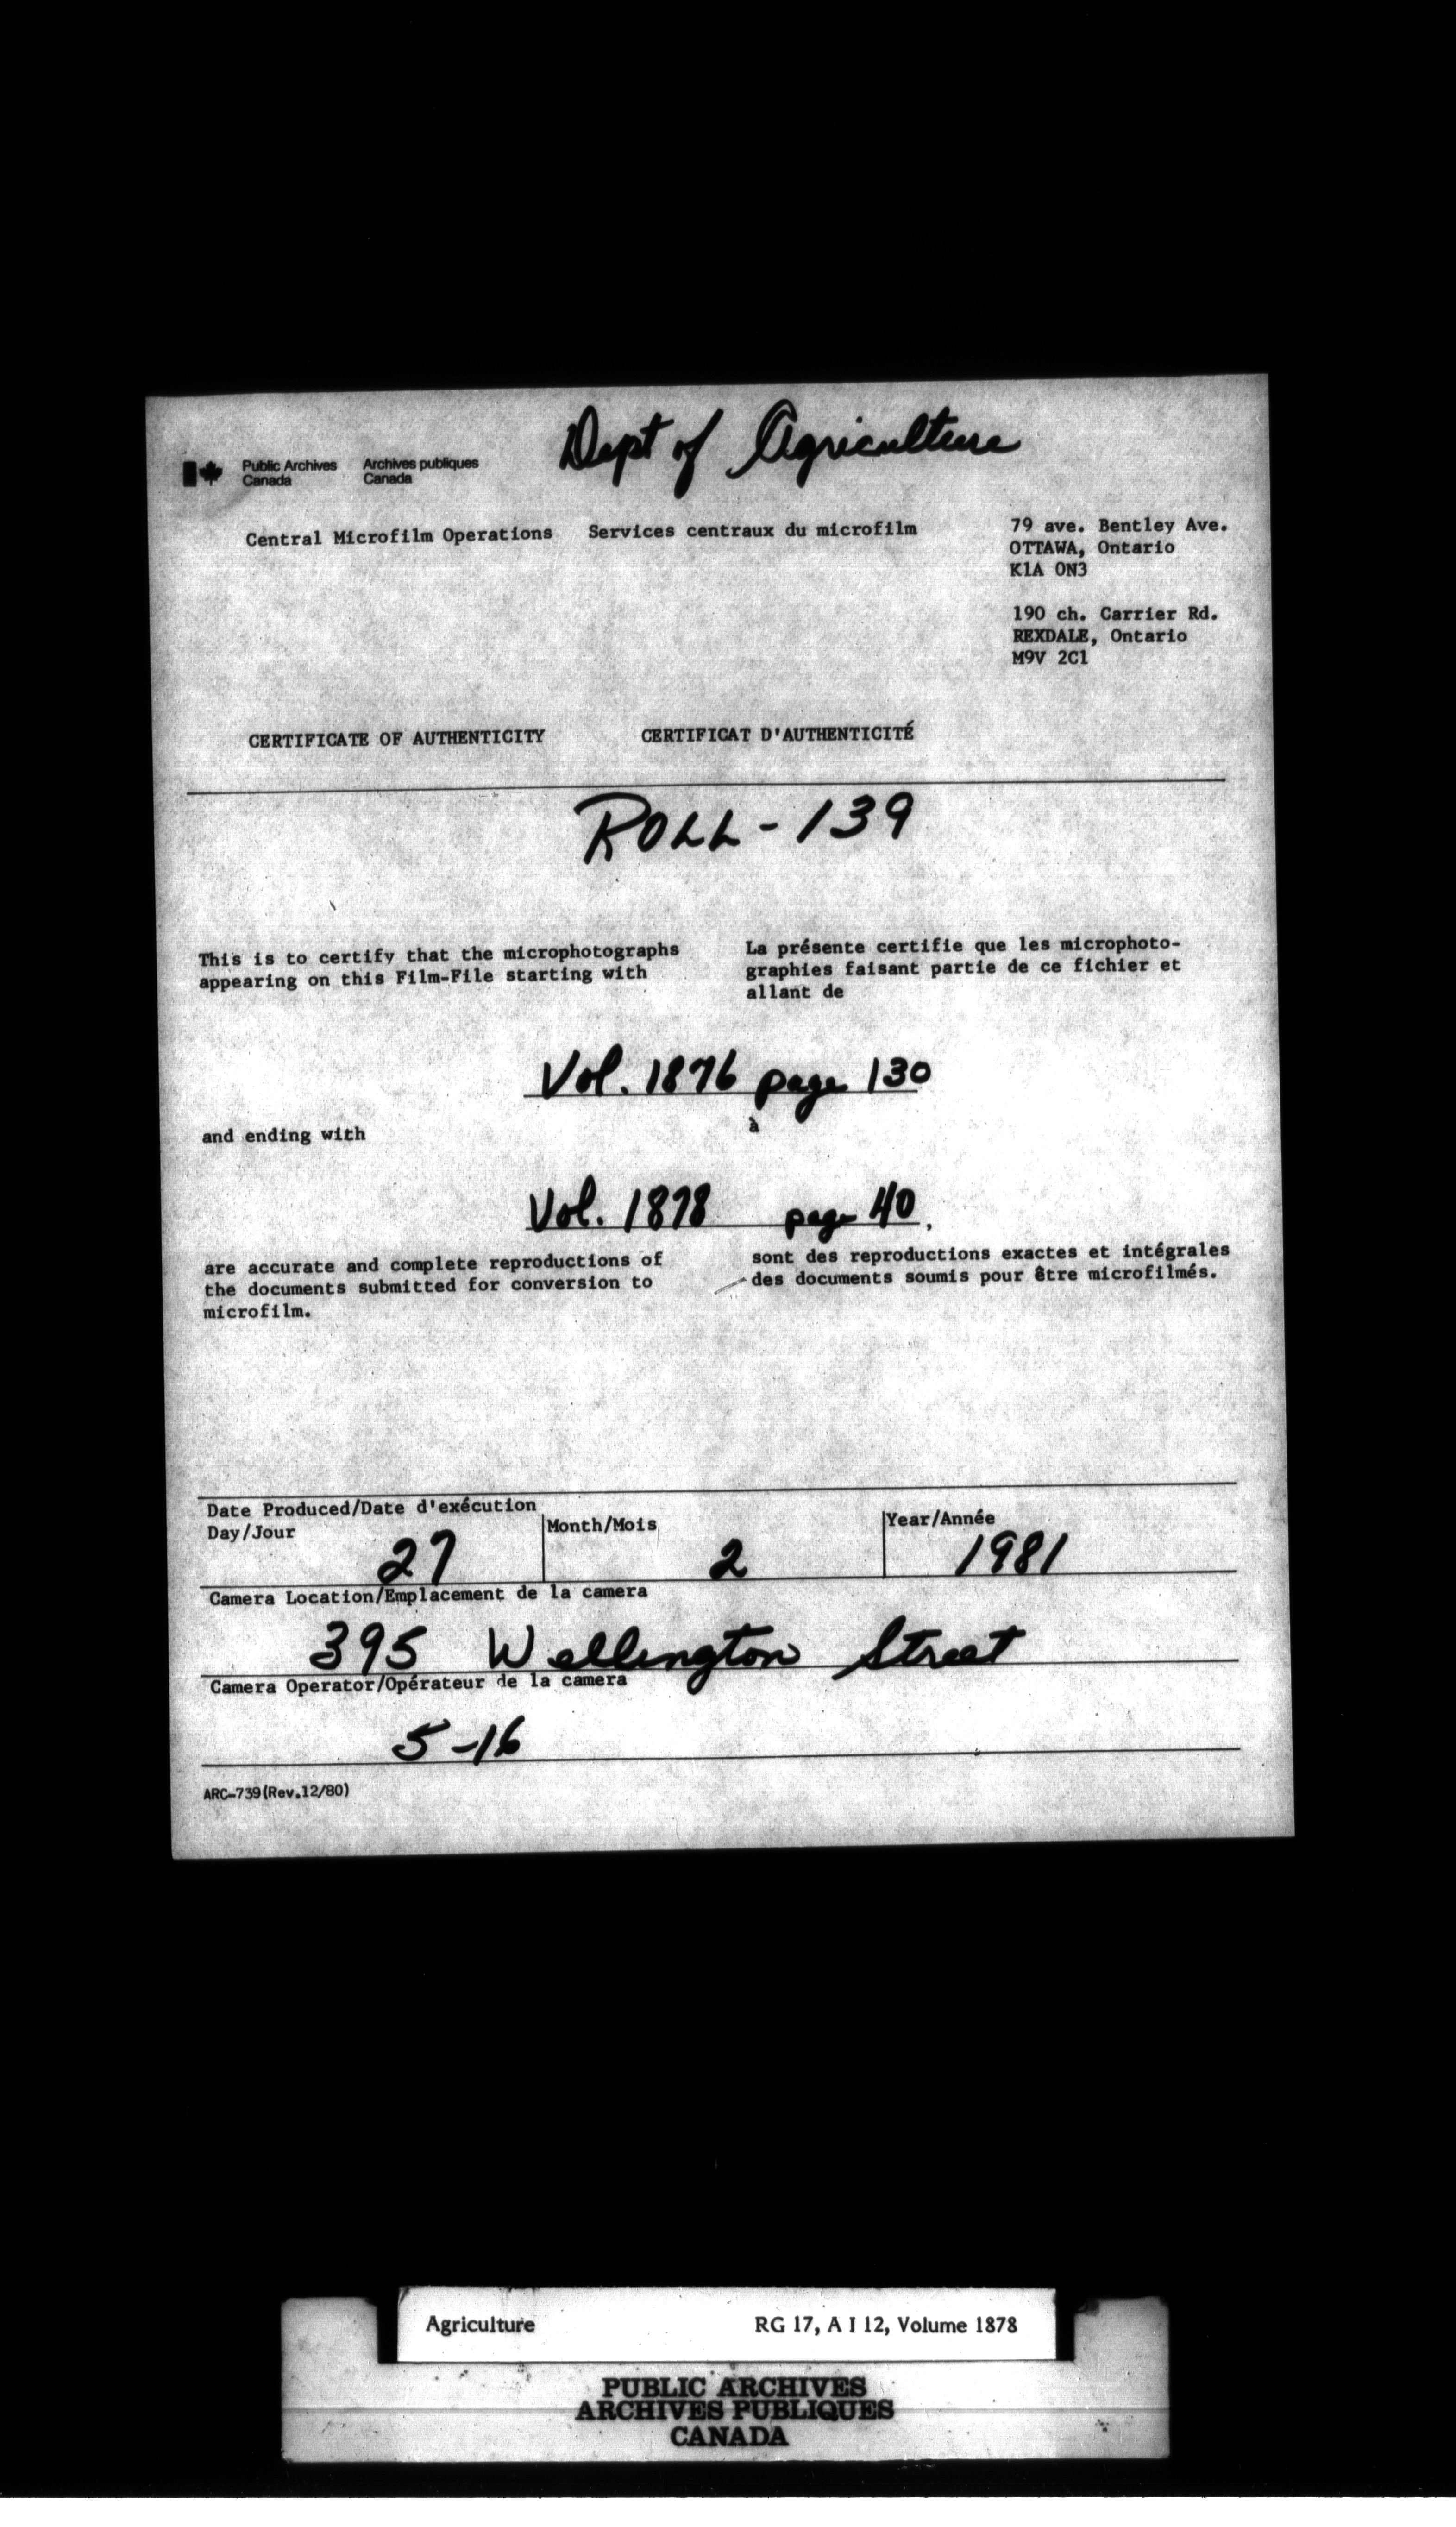 Dept of Agriculture
Public Archives Archives publiques
Canada Canada
Central Microfilm Operations Services centraux du microfilm
79 ave. Bentley Ave.
OTTAWA, Ontario
K1A 0N3
190 ch. Carrier Rd.
REXDALE, Ontario
M9V 2C1
CERTIFICATE OF AUTHENTICITY CERTIFICAT D'AUTHENTICITÉ
ROLL - 139
This is to certify that the microphotographs
appearing on this Film-File starting with
La présente certifie que les microphoto-
graphies faisant partie de ce fichier et
allant de
Vol. 1876 page 130
and ending with à
Vol. 1878 page 40.
are accurate and complete reproductions of
the documents submitted for conversion to
microfilm.
sont des reproductions exactes et intégrales
des documents soumis pour être microfilmés.
Date Produced/Date d'exécution
Day/Jour Month/Mois Year/Année
27 2 1981
Camera Location/Emplacement de la camera
395 Wellington Street
Camera Operator/Opérateur de la camera
5-16
ARC-739(Rev.12/80)
Agriculture RG 17, A I 12, Volume 1878
PUBLIC ARCHIVES
ARCHIVES PUBLIQUES
CANADA